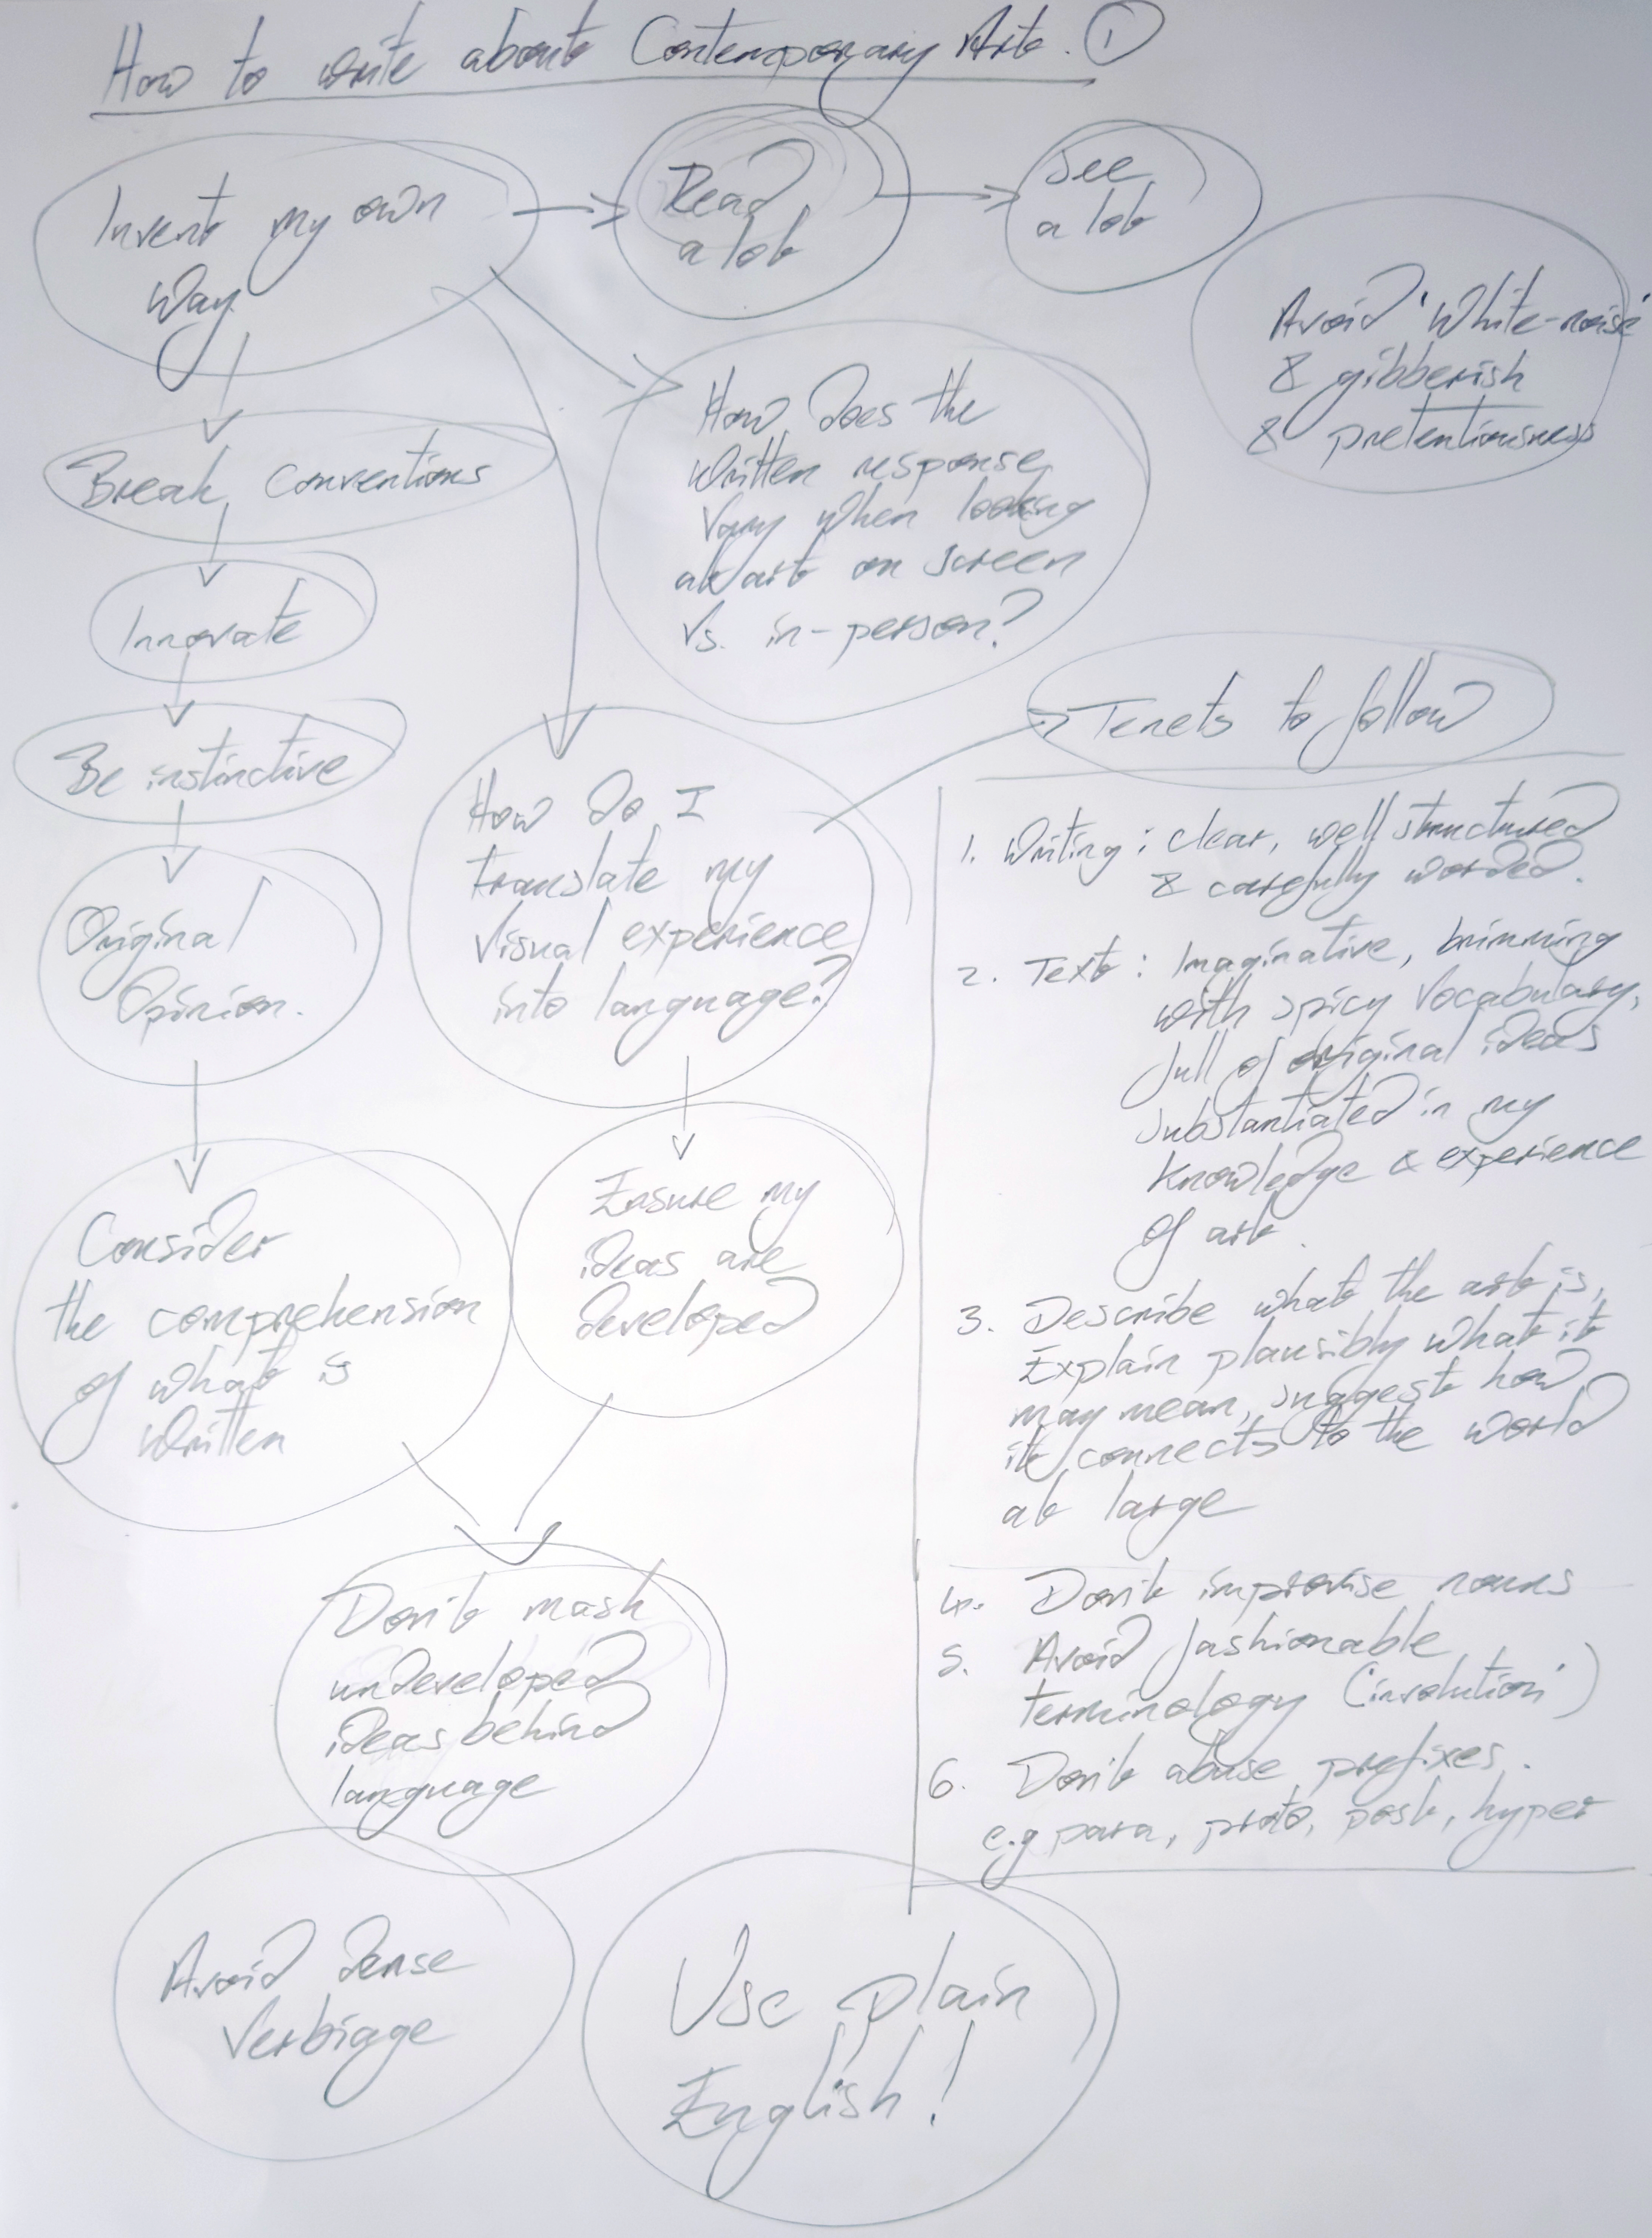 How to write about Contemporary Art. 1
Invent my own
way
Read
a lot
See
a lot
Avoid 'White-noise'
& gibberish
& pretentiousness
How does the
written response
vary when looking
at art on screen
vs. in-person?
Break conventions
Innovate
Be instinctive
Original
Opinion.
Consider
the comprehension
of what is
written
How do I
translate my
visual experience
into language?
Ensure my
ideas are
developed
Don't mask
undeveloped
ideas behind
language
Avoid dense
verbiage
Use plain
English!
Tenets to follow
1. Writing: clear, well structured
& carefully worded.
2. Text: Imaginative, brimming
with spicy vocabulary,
full of original ideas
substantiated in my
knowledge & experience
of art.
3. Describe what the art is,
Explain plausibly what it
may mean, suggest how
it connects to the world
at large
4. Don't improvise nouns
5. Avoid fashionable
terminology ('involution')
6. Don't abuse prefixes.
e.g para, proto, post, hyper